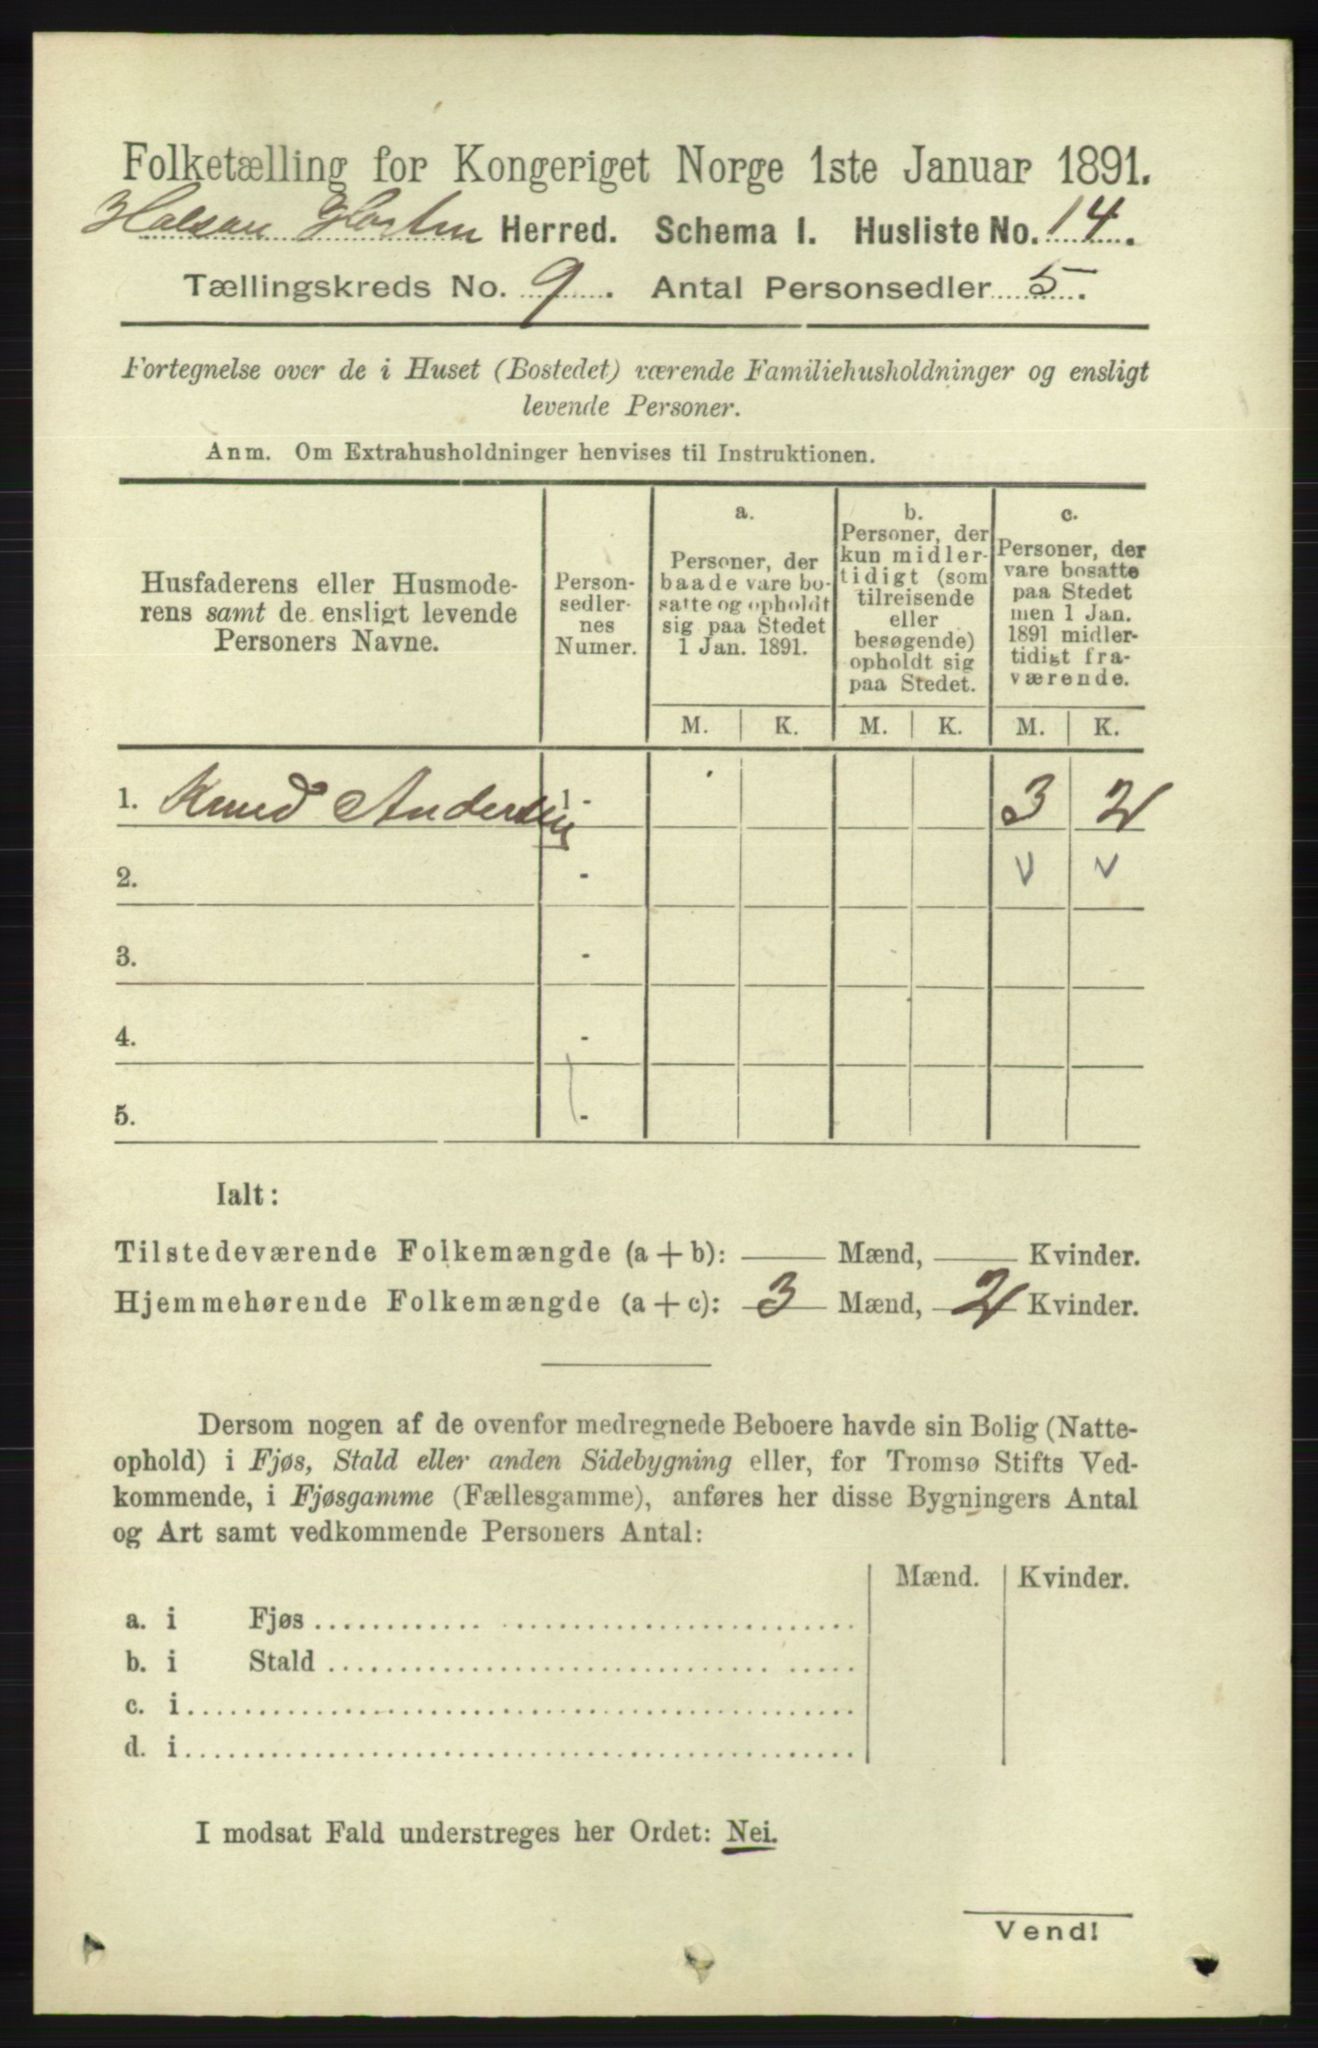 Folketælling for Kongeriget Norge 1ste Januar 1891.
Herred. Schema I. Husliste No. 14.
Tællingskreds No. 9. Antal Personsedler 5.
Fortegnelse over de i Huset (Bostedet) værende Familiehusholdninger og ensligt
levende Personer.
Anm. Om Extrahusholdninger henvises til Instruktionen.
Husfaderens eller Husmode-
rens samt de ensligt levende
Personers Navne.
Person-
sedler-
nes
Numer.
a.
Personer, der
baade vare bo-
satte og opholdt
sig paa Stedet
1 Jan. 1891.
b.
Personer, der
kun midler-
tidigt (som
tilreisende
eller
besøgende)
opholdt sig
paa Stedet.
c.
Personer, der
vare bosatte
paa Stedet
men 1 Jan.
1891 midler-
tidigt fra-
værende.
M. K. M. K. M. K.
1. Knud 1 - 3 2
2. - v v
3. -
4. -
5. -
Ialt:
Tilstedeværende Folkemængde (a + b): — Mænd, — Kvinder.
Hjemmehørende Folkemængde (a + c): 3 Mænd, 2 Kvinder.
Dersom nogen af de ovenfor medregnede Beboere havde sin Bolig (Natte-
ophold) i Fjøs, Stald eller anden Sidebygning eller, for Tromsø Stifts Ved-
kommende, i Fjøsgamme (Fællesgamme), anføres her disse Bygningers Antal
og Art samt vedkommende Personers Antal:
Mænd. Kvinder.
a. i Fjøs
b. i Stald
c. i
d. i
I modsat Fald understreges her Ordet: Nei.
Vend!